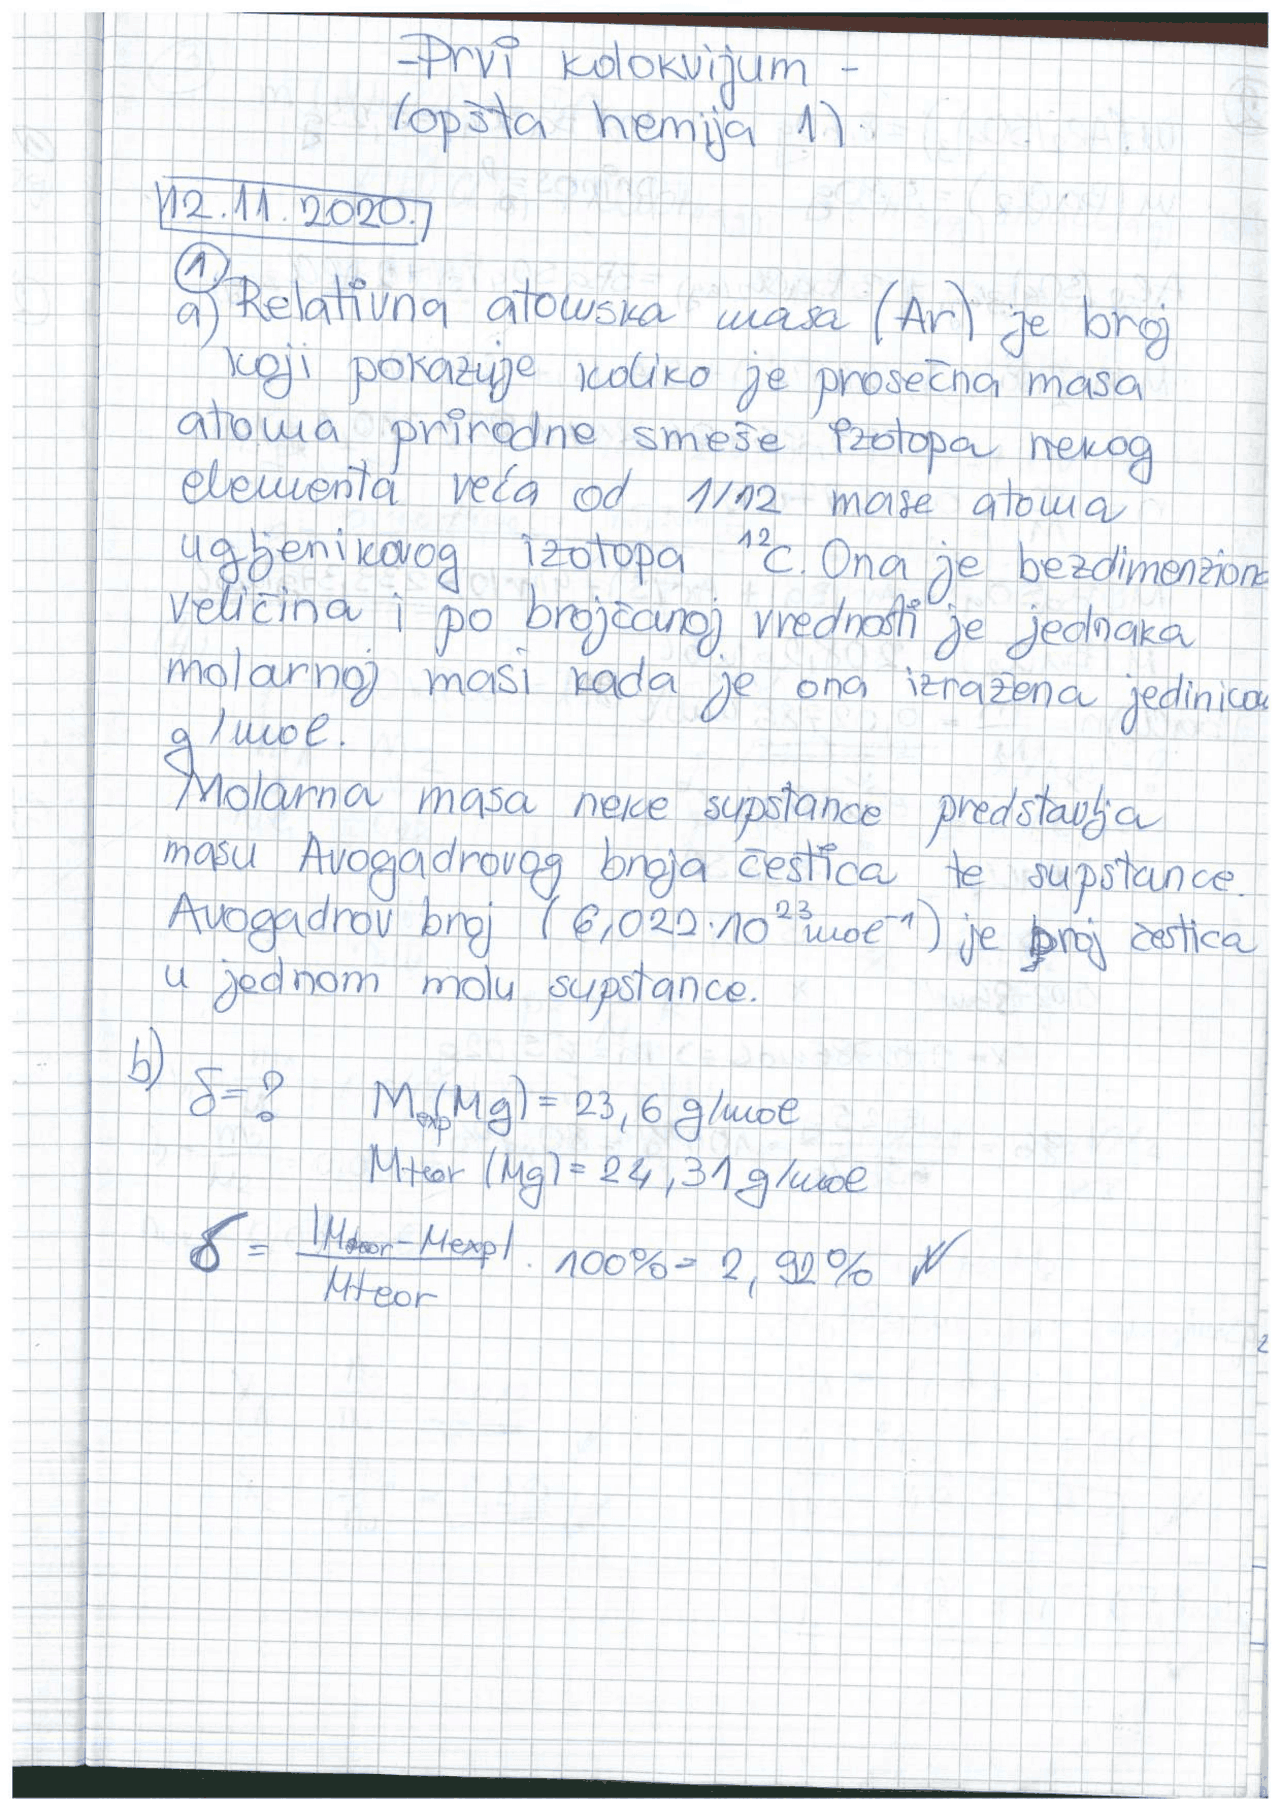 -Prvi kolokvijum -
(opšta hemija 1)
12.11.2020.
1.
a) Relativna atomska masa (Ar) je broj
koji pokazuje koliko je prosečna masa
atoma prirodne smeše izotopa nekog
elementa veća od 1/12 mase atoma
ugljenikovog izotopa ¹²C. Ona je bezdimenziona
veličina i po brojčanoj vrednosti je jednaka
molarnoj masi kada je ona izražena jedinicom
g/mol.
Molarna masa neke supstance predstavlja
masu Avogadrovog broja čestica te supstance.
Avogadrov broj (6,022·10²³mol⁻¹) je broj čestica
u jednom molu supstance.
b) δ=? Mexp(Mg)= 23,6 g/mol
Mteor (Mg)= 24,31 g/mol
δ = |Mteor - Mexp| / Mteor · 100%= 2,92% ✓